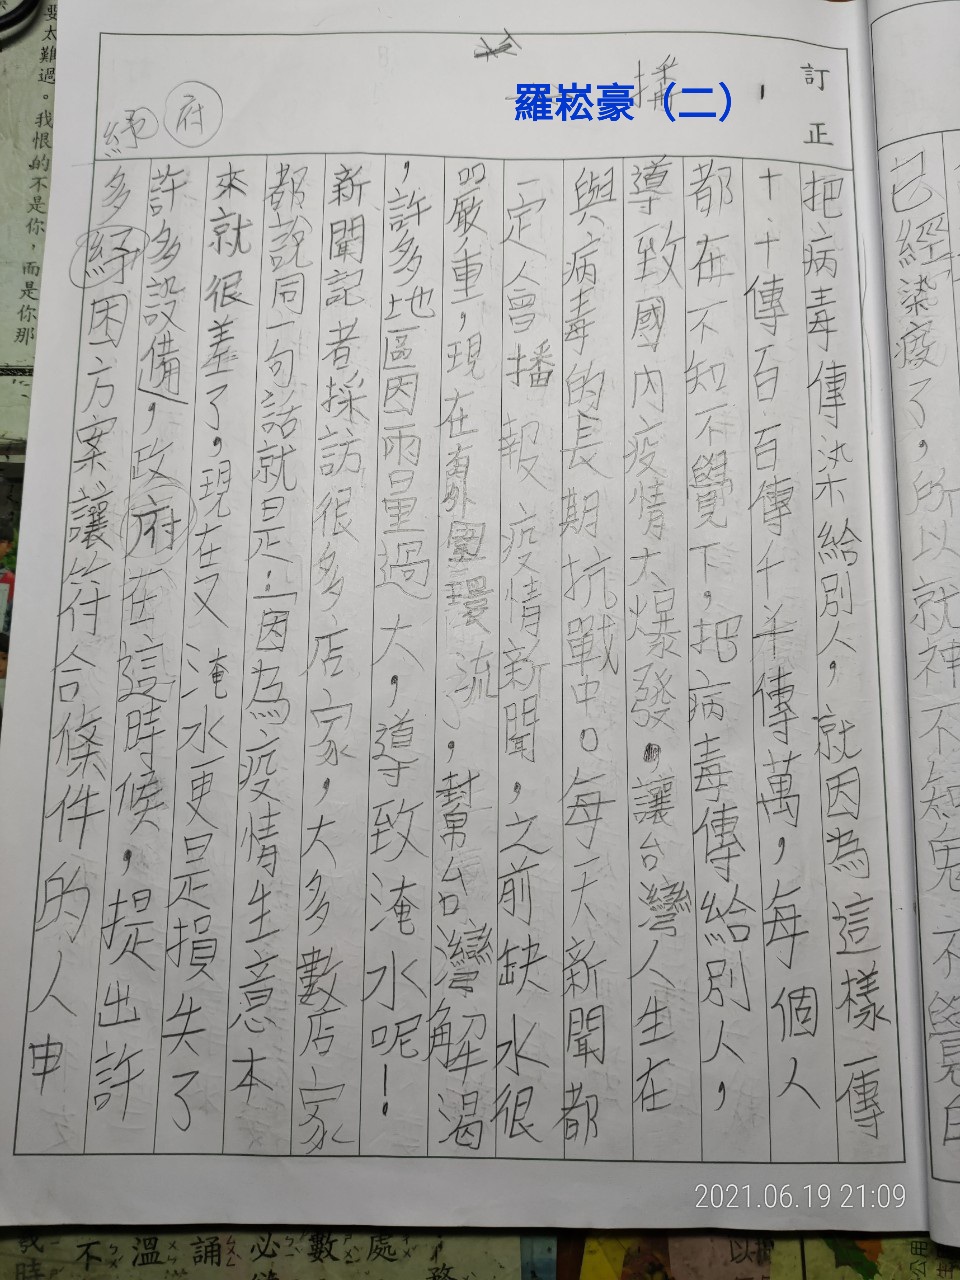 訂正
羅崧豪（二）
府
紓
把病毒傳染給別人，就因為這樣一傳
十、十傳百、百傳千、千傳萬，每個人
都在不知不覺下，把病毒傳給別人，
導致國內疫情大爆發，讓台灣人生在
與病毒的長期抗戰中。每天新聞都
一定人會播報疫情新聞，之前缺水很
嚴重，現在有外圍環流，幫台灣解渴
，許多地區因雨量過大，導致淹水呢！
新聞記者採訪很多店家，大多數店家
都說同一句話就是：「因為疫情生意本
來就很差了，現在又淹水更是損失了
許多設備，政府在這時候，提出許
多紓困方案讓符合條件的人申
已經染疫了，所以就神不知鬼不覺
要太難過。我恨的不是你，而是你那
不溫誦必數處
2021.06.19 21:09